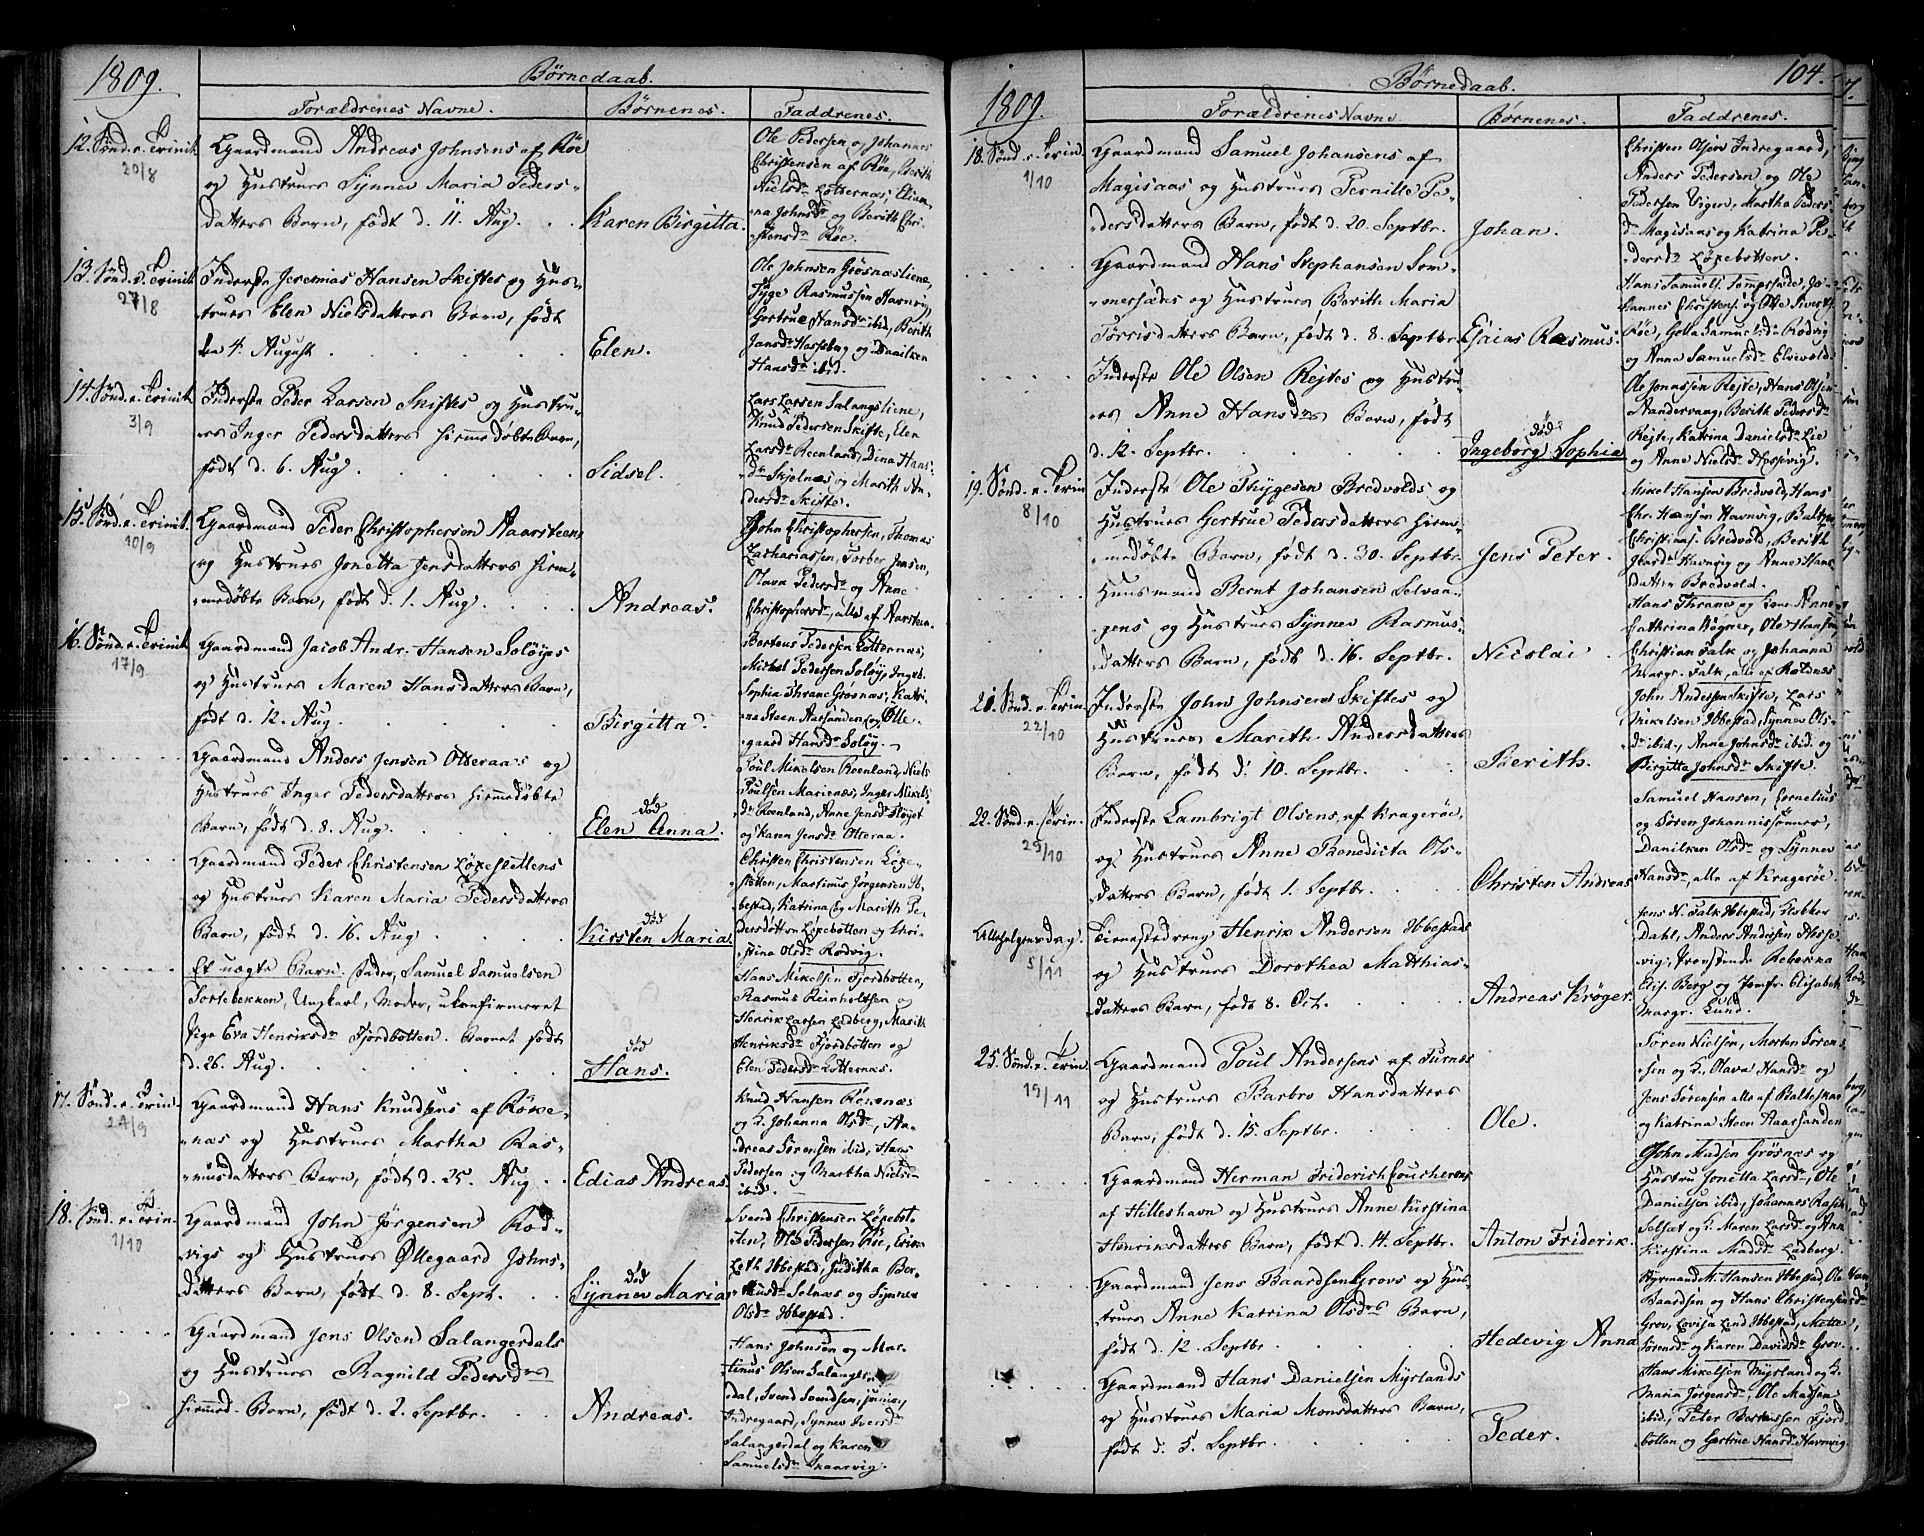 1809.
Børnedaab.
Forældrenes Navne.
Børnenes.
Faddrenes.
12. Sønd. e. Trinit.
20/8
Gaardmand Andreas Johnsens af Röe
og Hustrues Synnev Maria Peders-
datters Barn, født d. 11. Aug.
Karen Birgitta.
Ole Pedersen og Johannes
Christensen af Röe, Berith
Nielsdr Lotternæs, Elian-
na Johnsdr og Berith Chri-
stensdr Röe.
13. Sønd. e. Trinit.
27/8
Inderste Jeremias Hansen Skiftes og Hus-
trues Elen Nielsdatters Barn, født
den 4. August
Elen.
Ole Johnsen Grösnæsliene,
Tyge Rasmussen Havnvig,
Gertrue Hansdr ibid, Berith
Jansdr Hasseberg og Danilken
Hansdr ibid.
14. Sønd. e. Trinit.
3/9
Inderste Peder Larsen Skiftes og Hustru-
es Inger Pedersdatters hjemmedøbte Barn,
født d. 6. Aug.
Sidsel.
Lars Larsen Salangsliene,
Knud Pedersen Skifte, Elen
Larsdr Reenland, Dina Hans-
dr Skjelnæs og Marith An-
dersdr Skifte.
15. Sønd. e. Trinit.
10/9
Gaardmand Peder Christophersen Aarsteens
og Hustrues Jonetta Jensdatters hjem-
medøbte Barn, født d. 1. Aug.
Andreas.
John Christophersen, Thomas
Zachariassen, Torber Jensen,
Olava Pedersdr og Anne
Christophersdr, alle af Aarsteen.
16. Sønd. e. Trinit.
17/9
Gaardmand Jacob Andr. Hansen Soløyes
og Hustrues Maren Hansdatters Barn,
født d. 12. Aug.
Birgitta.
Berteus Pedersen Lotternæs,
Mikel Pedersen Soløy, Ingeb.
Sophia Thrane Grøsnæs, Katri-
na Steen Aarsanden og Ølle-
gaard Hansdr Soløy.
Gaardmand Anders Jensen Otteraas og
Hustrues Inger Pedersdatters hjemmedøbte
Barn, født d. 8. Aug.
død
Elen Anna.
Poul Mikelsen Reenland, Niels
Poulsen Marienæs, Inger Mikels-
dr Reenland, Anne Jensdr Fløjet
og Karen Jensdr Otteraa.
Gaardmand Peder Christensen Løxeslettens
og Hustrues Karen Maria Pedersdatters
Barn, født d. 16. Aug
død
Kirsten Maria
Christen Christensen Löxe-
sletten, Martinus Jørgensen Ib-
bestad, Katrina og Marith Pe-
dersdöttre Löxebotten og Chri-
stina Olsdr Rodvig.
Et uægte Barn. Fader, Samuel Samuelsen
Tortebekken, Ungkarl, Moder, ukonfirmeret
Pige Eva Henriksdr Fjordbotten. Barnet født
d. 26. Aug.
død
Hans.
Hans Mikelsen Fjordbotten,
Rasmus Reinholtsen og
Henrik Larsen Ledberg, Marith
Henriksdr Fjordbotten og
Elen Pedersdr Lotternæs.
17. Sønd. e. Trin.
24/9
Gaardmand Hans Knudsens af Röxe-
næs og Hustrues Martha Ras-
musdatters Barn, født d. 25. Aug
Edias Andreas.
Knud Hansen Röxenæs
og H. Johanna Olsdr, An-
dreas Sørensen ibid, Hans
Pedersen og Martha Nielsdr
ibid.
18. Sønd. e. Trin.
1/10
Gaardmand John Jørgensen Rod-
vigs og Hustrues Øllegaard Johns-
datters Barn, født d. 8. Sept.
død
Synnev Maria
Svend Christensen Löxebot-
ten, Ole Pedersen Röe, Erik
Leth Ibbestad, Juditha Ber-
theusdr Selnæs og Synnev
Olsdr Ibbestad.
Gaardmand Jens Olsen Salangsdals
og Hustrues Ragnild Pedersdrs
hjemmed. Barn, født d. 2. Septbr.
Andreas.
Hans Johnsen og Mar-
tinus Olsen Salangs-
dal, Svend Svendsen junior,
Indregaard, Synnev Iversdr
Salangsdal og Karen
Samuelsdr Skaarvig.
1809.
Børnedaab.
104.
Forældrenes Navne
Børnenes.
Faddrenes.
18. Sønd. e. Trin.
1/10
Gaardmand Samuel Johansens af
Magisaas og Hustrues Pernille Pe-
dersdatters Barn, født d. 20. Septbr.
Johan.
Christen Olsen Indregaard,
Anders Pedersen og Ole
Pedersen Vigen, Martha Peders-
dr Magisaas og Katrina Pe-
dersdr Löxebotten.
Gaardmand Hans Stephansen Som-
mersædes og Hustrues Berith Maria
Torrisdatters Barn, født d. 8. Septbr.
Esaias Rasmus.
Hans Samuels. Sømersæde, Jo-
hannes Christens. og Ole Siverts.
Röe, Golla Samuelsdr Rodvig
og Anne Samuelsdr Elvevold.
Inderste Ole Olsen Rejtes og Hustru-
es Anne Hansdrs Barn, født
d. 12. Septbr.
død
Ingeborg Sophia
Ole Jonassen Rejte, Hans Olsen
Sandervaag, Berith Pedersdr
Rejte, Katrina Danielsdr Lie
og Anne Nielsdr Hessevig.
19. Sønd. e. Trin.
8/10
Inderste Ole Thygesen Bredvolds og
Hustrues Gertrue Pedersdatters hjem-
medøbte Barn, født d. 30. Septbr.
Jens Peter.
Mikel Hansen Bredvold, Hans
Chr. Hansen Havnvig, Baltzer
Christians. Bredvold, Berith
Havnvig og Anne Hans
datter Bredvold.
Huusmand Bernt Johansen Selvaa-
gens og Hustrues Synnev Rasmus-
datters Barn, født d. 16. Septbr.
Nicolai
Hans Thrane og Anne
Cathrina Wegner, Ole Hansen,
Christian Falk og Johanna
Margr. Falk, alle af Rotnæs
21. Sønd. e. Trin.
22/10
Inderste John Johnsen Skiftes og
Hustrues Marith Andersdatters
Barn, født d. 10. Septbr.
Berith.
John Andersen Skifte, Lars
Mikelsen Ibbestad, Synnev Ols-
dr ibid., Anne Johnsdr ibid. og
Birgitta Johnsdr Skifte.
22. Sønd. e. Trin.
29/10
Inderste Lambrigt Olsens, af Kragerøe,
og Hustrues Anne Baenedicta Ols-
datters Barn, født 1. Septbr.
Christen Andreas
Samuel Hansen, Cornelius
og Søren Johannissønner,
Danilken Olsdr og Synnev
Hansdr, alle af Kragerøe.
Allehelgensdag.
5/11
Tienestedreng Henrik Andersen Ibbestads
og Hustrues Dorothea Matthias-
datters Barn, født 8. Oct.
Andreas Krøger.
Jens H. Falk Ibbestad, Elsbker
Dahl, Anders Andersen Hesse-
vig, Provstinde Rebekka
Elis. Berg og Jomfr. Elisabeth
Margr. Lund.
25. Sønd. e. Trin.
19/11
Gaardmand Poul Andersens af Furnæs
og Hustrues Barbro Hansdatters
Barn, født d. 15. Septbr.
Ole.
Søren Nielsen, Morten Sören-
sen og H. Olava Hansdr og
Jens Sørensen alle af Balteskar
og Katrina Steen Aarsanden
Gaardmand Herman Friderich Coucherons
af Hilleshavn og Hustrues Anne Kirstina
Henriksdatters Barn, født d. 14. Septbr.
Anton Friderik.
John Madsen Grøsnæs og
Hustru Jonetta Larsdr, Ole
Danielsen ibid, Johannes Rask
Selset og H. Maren Larsdr og Anne
Kirstina Madsdr Ledberg.
Gaardmand Jens Baardsen Grovs og Hus-
trues Anne Katrina Olsdrs Barn,
født d. 12. Septbr.
Hedevig Anna
Styrmand M. Hansen Ibbestad, Ole
Baardsen og Hans Christensen
Grov, Lovisa Lind Ibbestad, Mette
Sørensdr og Karen Davidsdr Grov.
Gaardmand Hans Danielsen Myrlands
og Hustrues Maria Monsdatters Barn,
født d. 5. Septbr.
Peder.
Hans Mikelsen Myrland og H.
Maria Jørgensdr, Ole Madsen
ibid., Peter Berteussen Fjord-
botten og Gertrue Hansdr Havnvig.